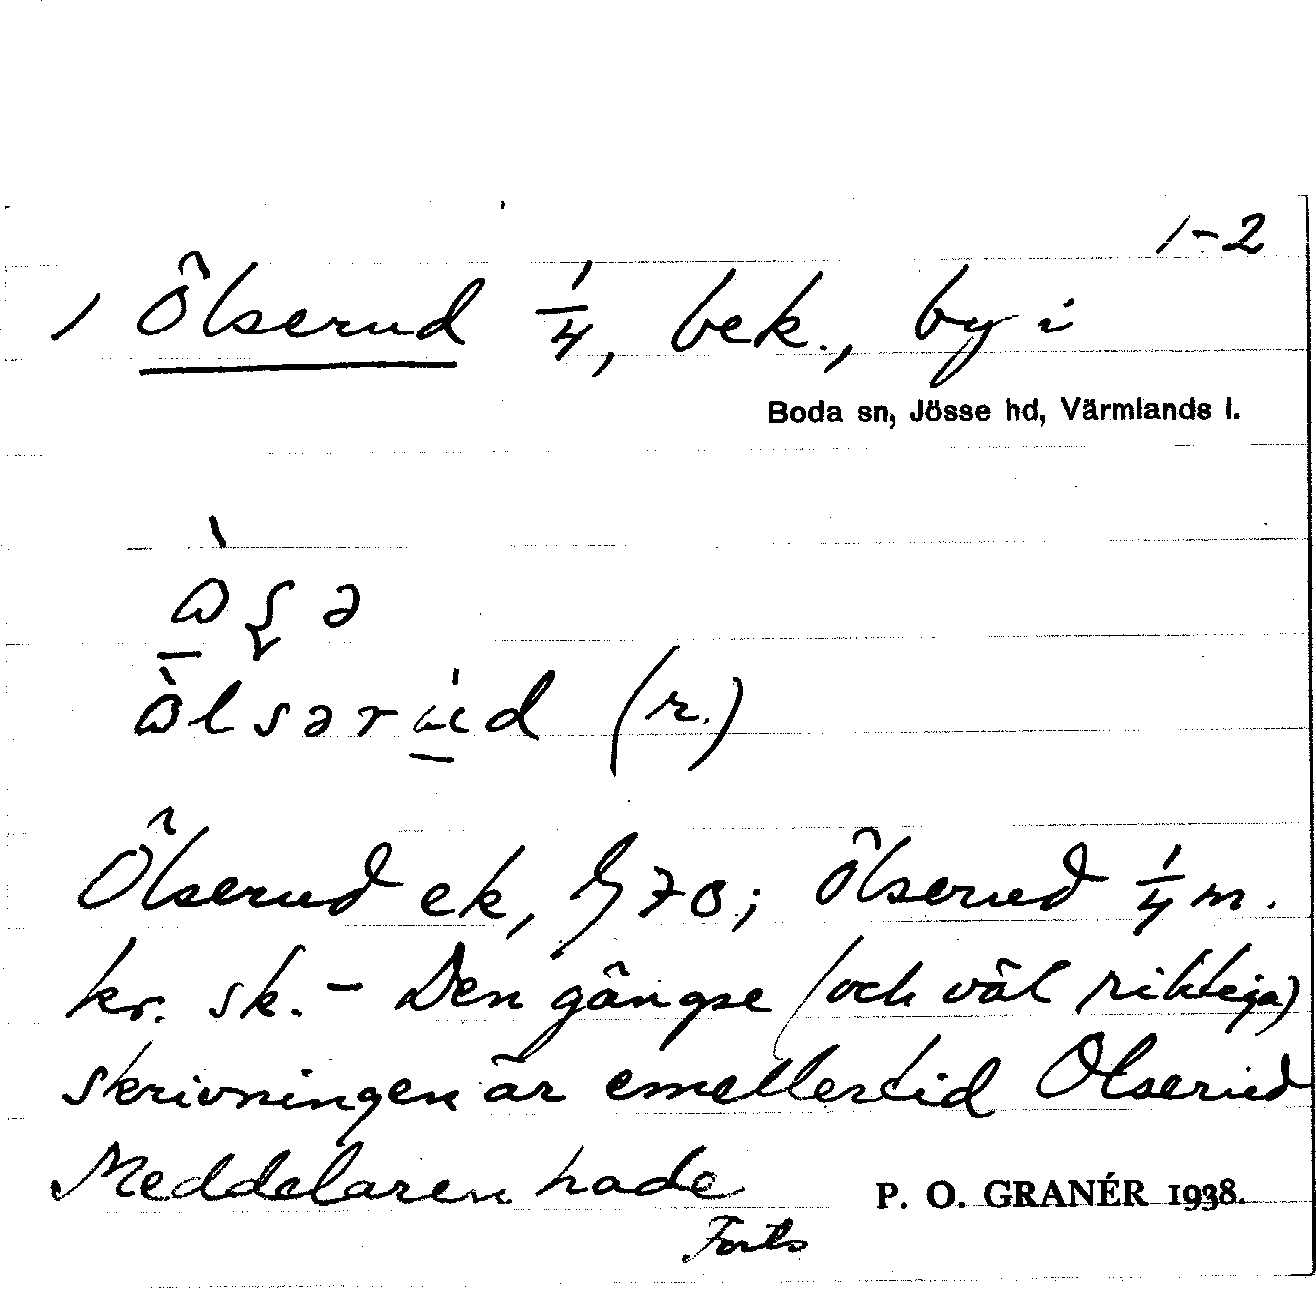 1-2
1 Ölserud 1/4, bek., by i
Boda sn, Jösse hd, Värmlands l.
(r.)
Ölserud ek, J 7 0; Ölserud 1/4 m.
kr. sk. - Den gängse (och väl riktiga)
skrivningen är emellertid Olserud
Meddelaren hade
P. O. GRANÉR 1938.
Forts